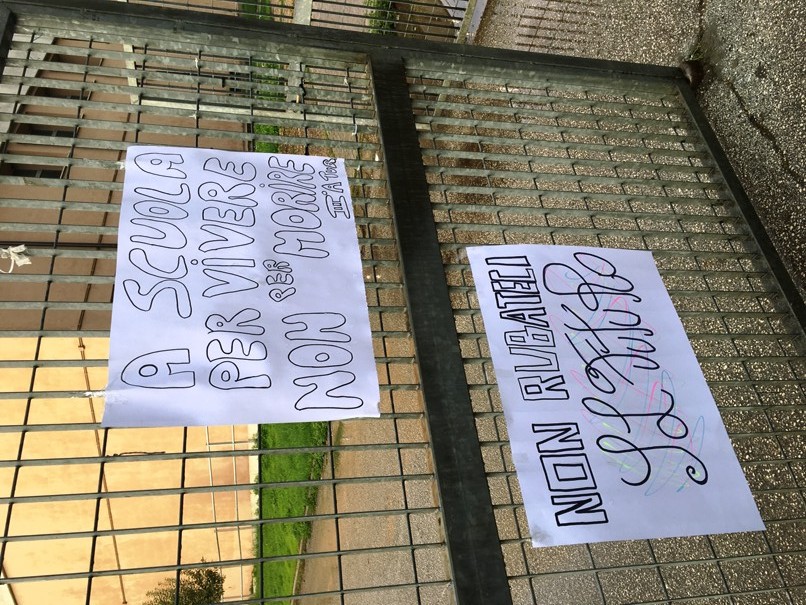 A SCUOLA
PER VIVERE
NON PER MORIRE
III A Tur
NON RUBATECI
IL FUTURO